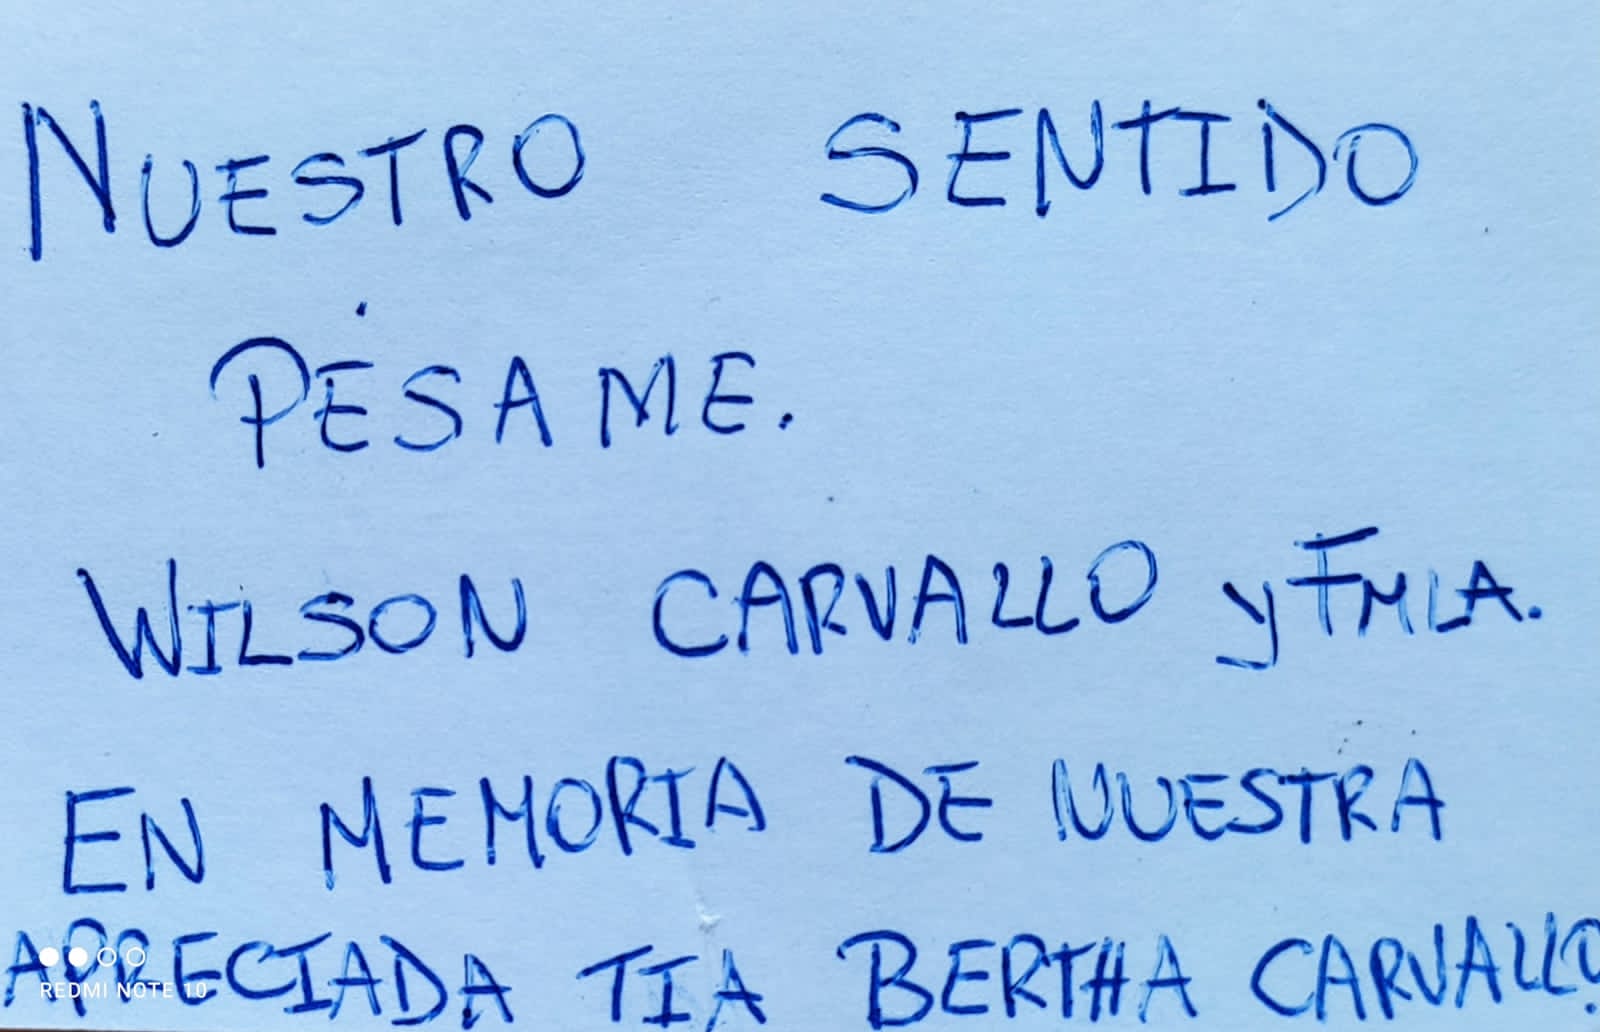 NUESTRO SENTIDO
PÉSAME.
WILSON CARVALLO y FMLA.
EN MEMORIA DE NUESTRA
APRECIADA TIA BERTHA CARVALLO
REDMI NOTE 10